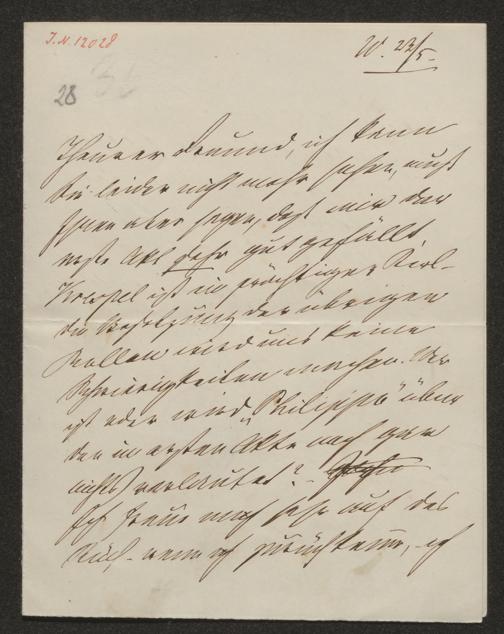 J.N. 12028
W. 22/5.
28
Theurer Freund, ich kann
Sie leider nicht mehr sehen, muß
Ihnen aber sagen, daß mir der
erste Akt sehr gut gefällt.
ist ein prächtiger Kerl -
die Besetzung der übrigen
Rollen wird uns keine
Schwierigkeiten machen. Wer
ist oder wird "Philippa" über
den im ersten Akte noch gar
nichts verlautet? -
Ich freue mich sehr auf das
wenn ich zurückkomme, - ich